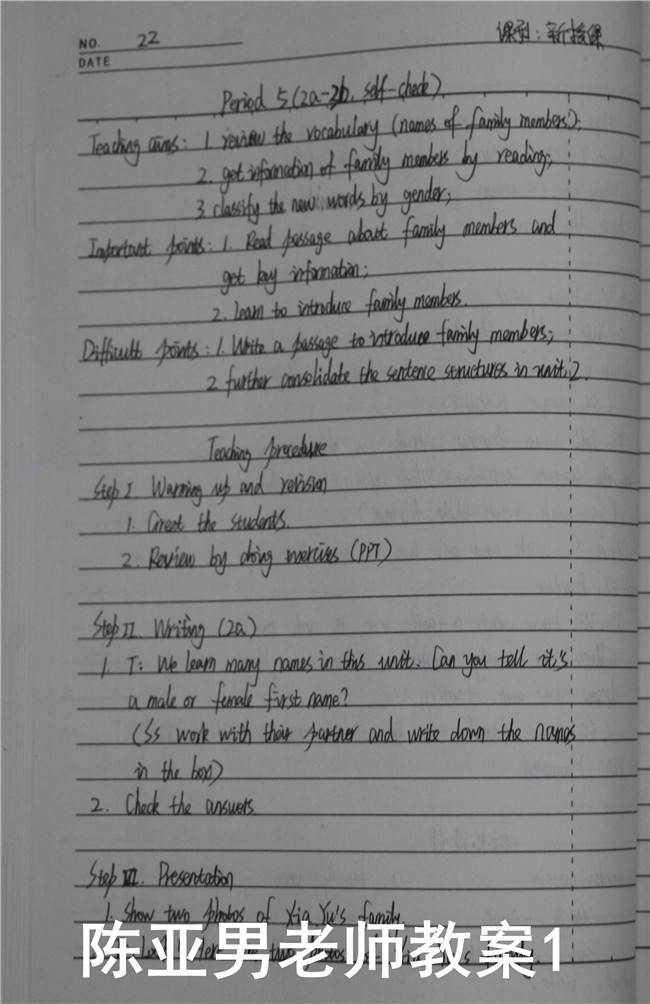 NO. 22
课型：新授课
DATE
Period 5 (2a-3b, self-check)
Teaching aims: 1 review the vocabulary (names of family members);
2. get information of family members by reading;
3 classify the new words by gender;
Important points: 1. Read passage about family members and
get key information;
2. learn to introduce family members.
Difficult points: 1. Write a passage to introduce family members;
2 further consolidate the sentence structures in unit 2.
Teaching procedure
Step I Warming up and revision
1. Greet the students.
2. Review by doing exercises (PPT)
Step II. Writing (2a)
1. T: We learn many names in this unit. Can you tell it's
a male or female first name?
(Ss work with their partner and write down the names
in the box)
2. Check the answers.
Step III. Presentation
1. Show two photos of Xia Yu's family.
陈亚男老师教案1